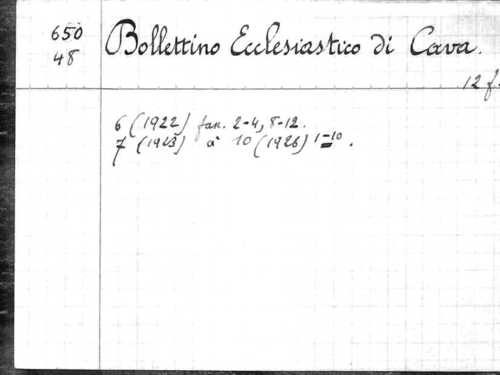 650
48
Bollettino Ecclesiastico di Cava.
12 f.
6 (1922) fan. 2-4, 8-12.
7 (1923) à 10 (1926) 1-10.